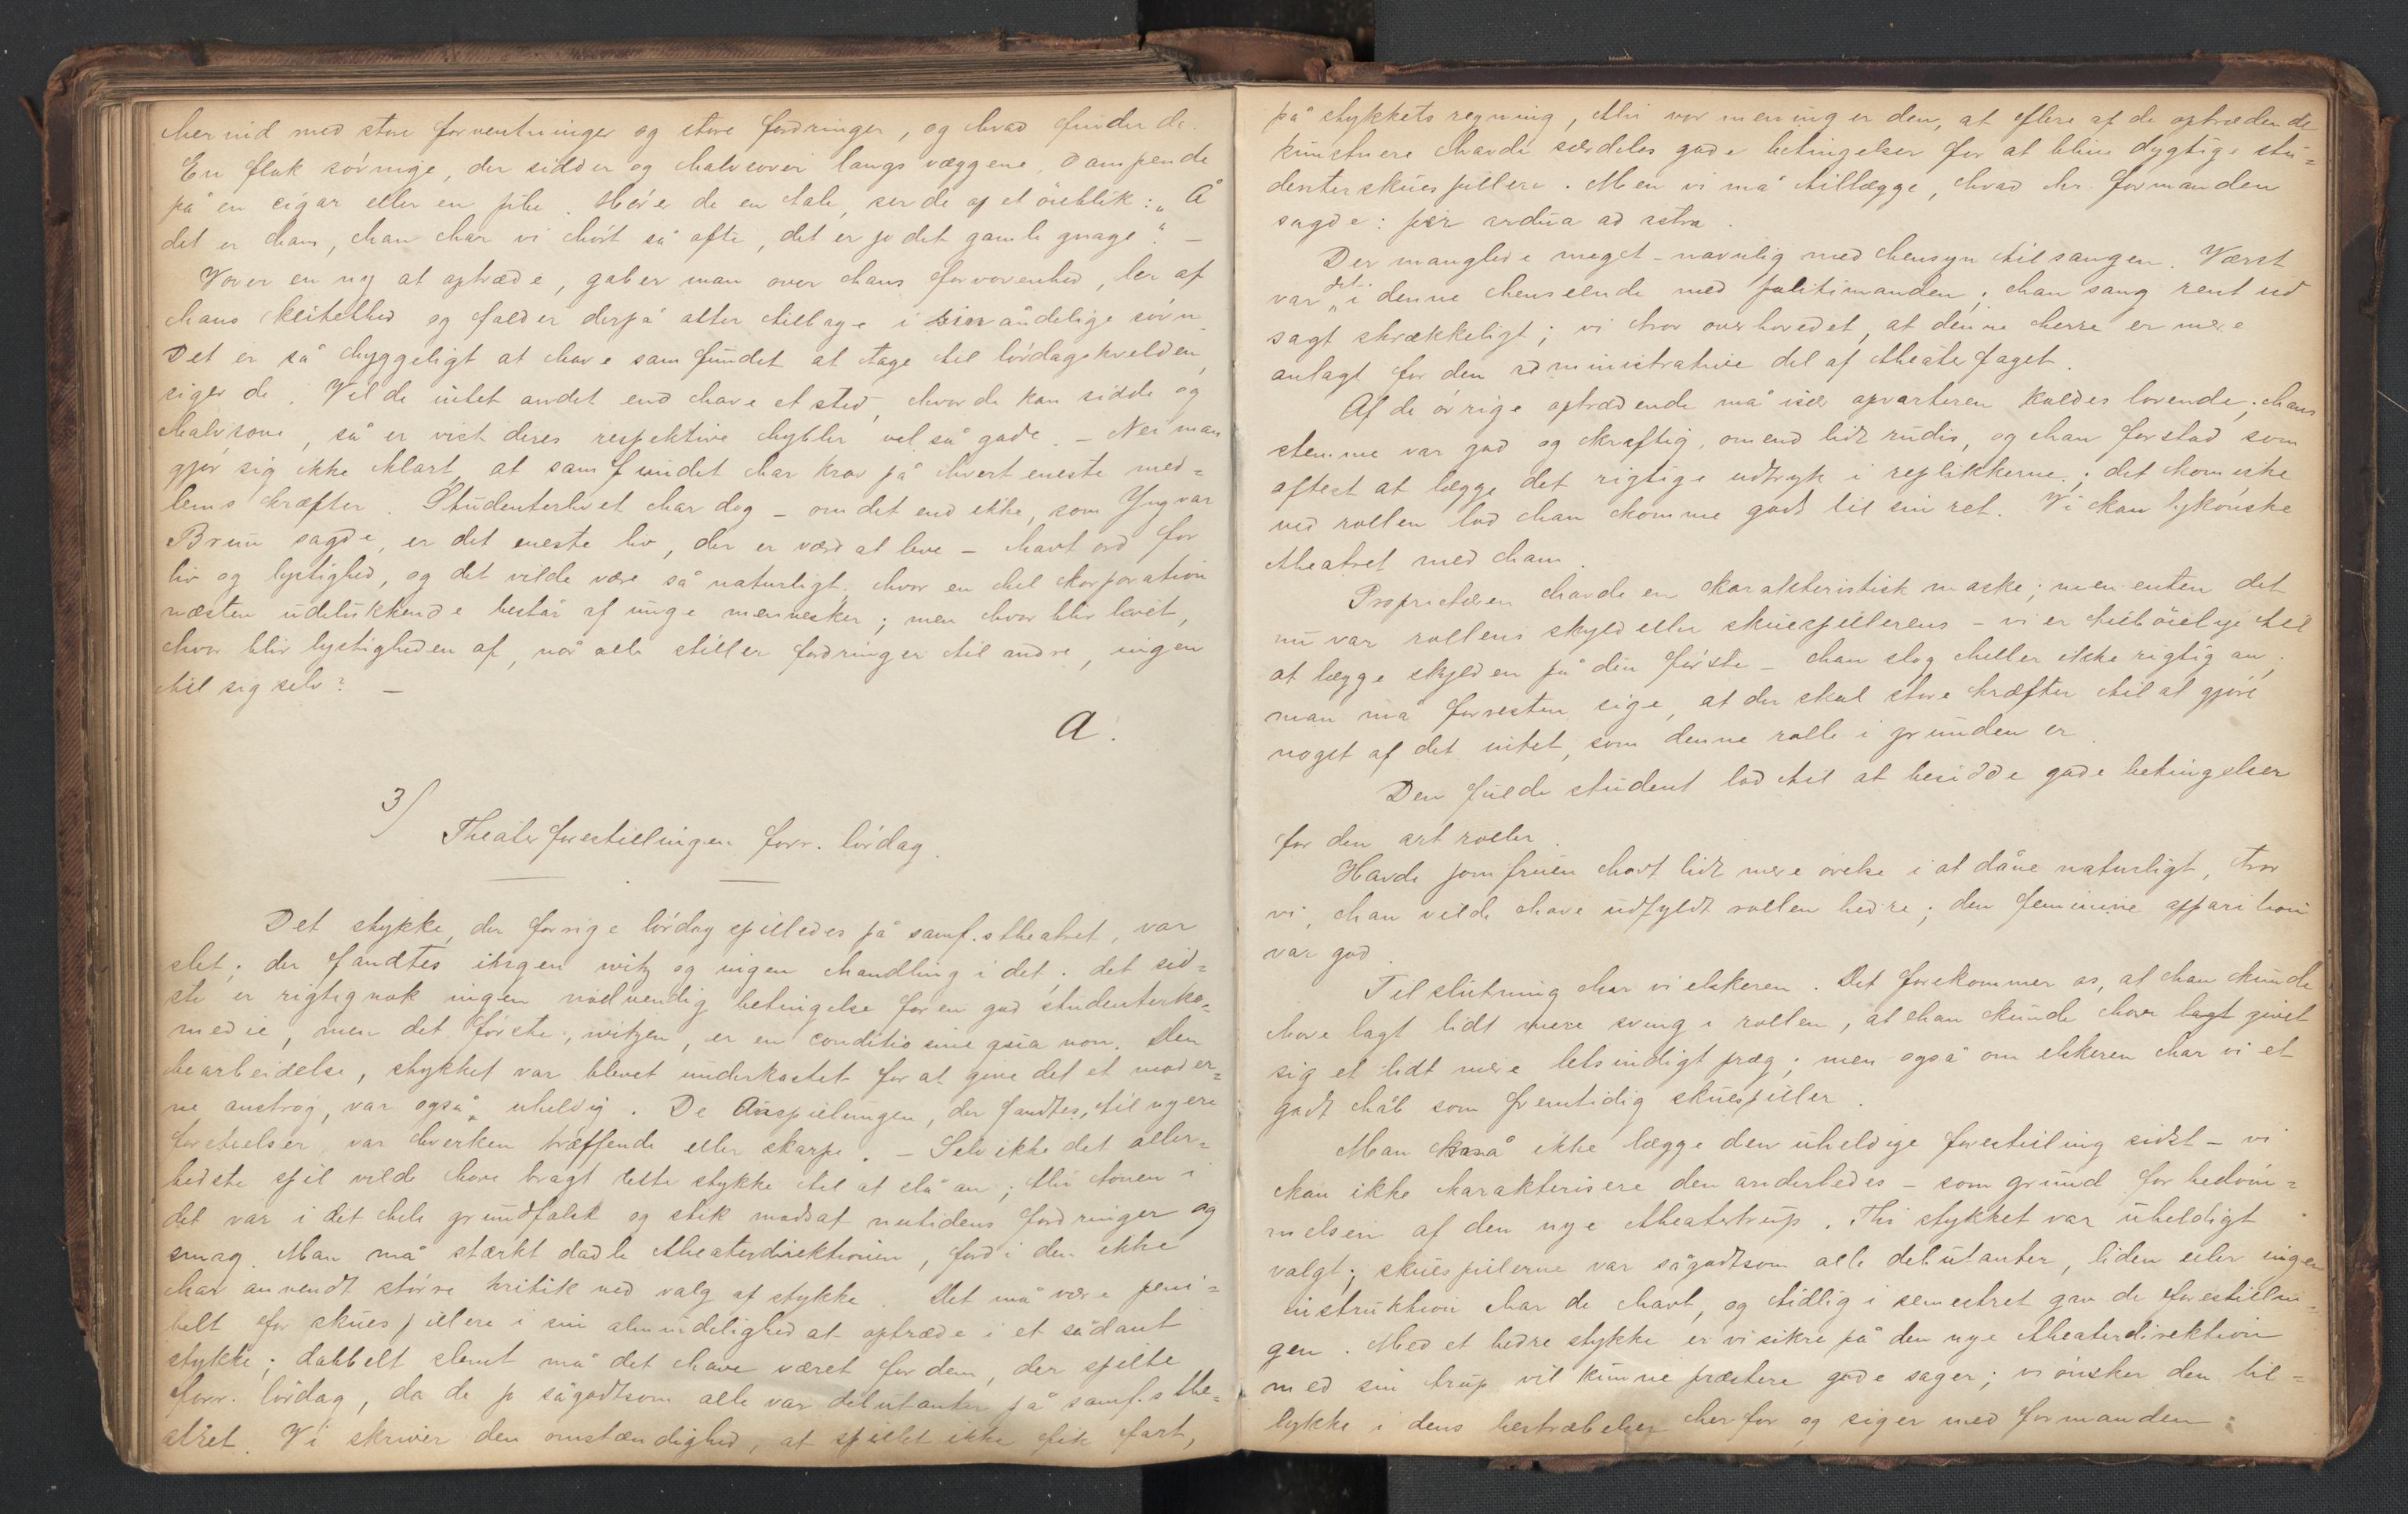 her ind med store forventninger og store fordringer, og hvad finder de.
En flok søvnige, der sidder og halvsover langs væggene, dampende
på en cigar eller en pibe. Hører de en tale, ser de op et öieblik: „Å
det er ham, ham har vi hørt så ofte, det er jo det gamle gnage“. —
Vover en ny at optræde, gaber man over hans forvovenhed, ler af
hans keitethed og falder derpå atter tilbage i sin åndelige søvn.
Det er så hyggeligt at have samfundet at tage til lördagskvelden,
siger de. Vil de intet andet end have et sted, hvor de kan sidde og
halvsove, så er vist deres respektive hybler vel så gode. — Nei man
gjør sig ikke klart, at samfundet har krav på hvert eneste med=
lems kræfter. Studenterlivet har dog — om det end ikke, som Yngvar
Brun sagde, er det eneste liv, der er værd at leve — havt ord for
liv og lystighed, og det vilde være så naturligt, hvor en hel korporation
næsten udelukkende består af unge mennesker; men hvor blir livet,
hvor blir lystigheden af, når alle stiller fordringer til andre, ingen
til sig selv? —
A.
3)
Theaterforestillingen forr. lördag.
Det stykke, der forrige lördag spilledes på samf.s theatret, var
slet; der fandtes ingen witz og ingen handling i det; det sid=
ste er rigtignok ingen nødvendig betingelse for en god studenterko=
medie, men det første, witzen, er en conditio sine qua non. Den
bearbeidelse, stykket var blevet underkastet for at give det et moder=
ne anstrøg, var også uheldig. De Anspielungen, der fandtes, til nyere
foreteelser var hverken træffende eller skarpe. — Selv ikke det aller=
bedste spil vilde have bragt dette stykke til at slå an; thi tonen i
det var i det hele grundfalsk og stik modsat nutidens fordringer og
smag. Man må stærkt dadle theaterdirektionen, fordi den ikke
har anvendt større kritik ved valg af stykke. Det må være peni=
belt for skuespillere i sin almindelighed at optræde i et sådant
stykke; dobbelt slemt må det have været for dem, der spilte
forr. lördag, da de jo sågodtsom alle var debutanter på samf.s the=
atret. Vi skriver den omstændighed, at spillet ikke fik fart,
på stykkets regning, thi vor mening er den, at flere af de optrædende
kunstnere havde særdeles gode betingelser for at blive dygtige stu=
denterskuespillere. Men vi må tillægge, hvad hr. formanden
sagde: per ardua ad astra.
Der manglede meget — navnlig med hensyn til sangen. Værst
var det i denne henseende med politimanden; han sang rent ud
sagt skrækkeligt; vi tror overhovedet, at denne herre er mere
anlagt for den administrative del af theaterfaget.
Af de övrige optrædende må især opvarteren kaldes lovende; hans
stemme var god og kraftig, omend lidt rudis, og han forstod som
oftest at lægge det rigtige udtryk i replikkerne; det komiske
ved rollen lod han komme godt til sin ret. Vi kan lykønske
theatret med ham.
Proprietæren havde en karakteristisk maske; men enten det
nu var rollens skyld eller skuespillerens — vi er tilböielige til
at lægge skylden på den første — han slog heller ikke rigtig an;
man må forresten sige, at der skal store kræfter til at gjöre
noget af det intet, som denne rolle i grunden er.
Den fulde student lod til at besidde gode betingelser
for den art roller.
Havde jomfruen havt lidt mere övelse i at dåne naturligt, tror
vi, han vilde have udfyldt rollen bedre; den feminine apparition
var god.
Til slutning har vi elskeren. Det forekommer os, at han kunde
have lagt lidt mere sving i rollen, at han kunde have lagt givet
sig et lidt mere letsindigt præg; men også om elskeren har vi et
godt håb som fremtidig skuespiller.
Man må ikke lægge den uheldige forestilling sidst — vi
kan ikke karakterisere den anderledes — som grund for bedöm=
melsen af den nye theatertrup. Thi stykket var uheldigt
valgt; skuespillerne var sågodtsom alle debutanter, liden eller ingen
instruktion har de havt, og tidlig i semestret gav de forestillin=
gen. Med et bedre stykke er vi sikre på den nye theaterdirektion
med sin trup vil kunne præstere gode sager; vi ønsker den til=
lykke i dens bestræbelser herfor og siger med formanden: